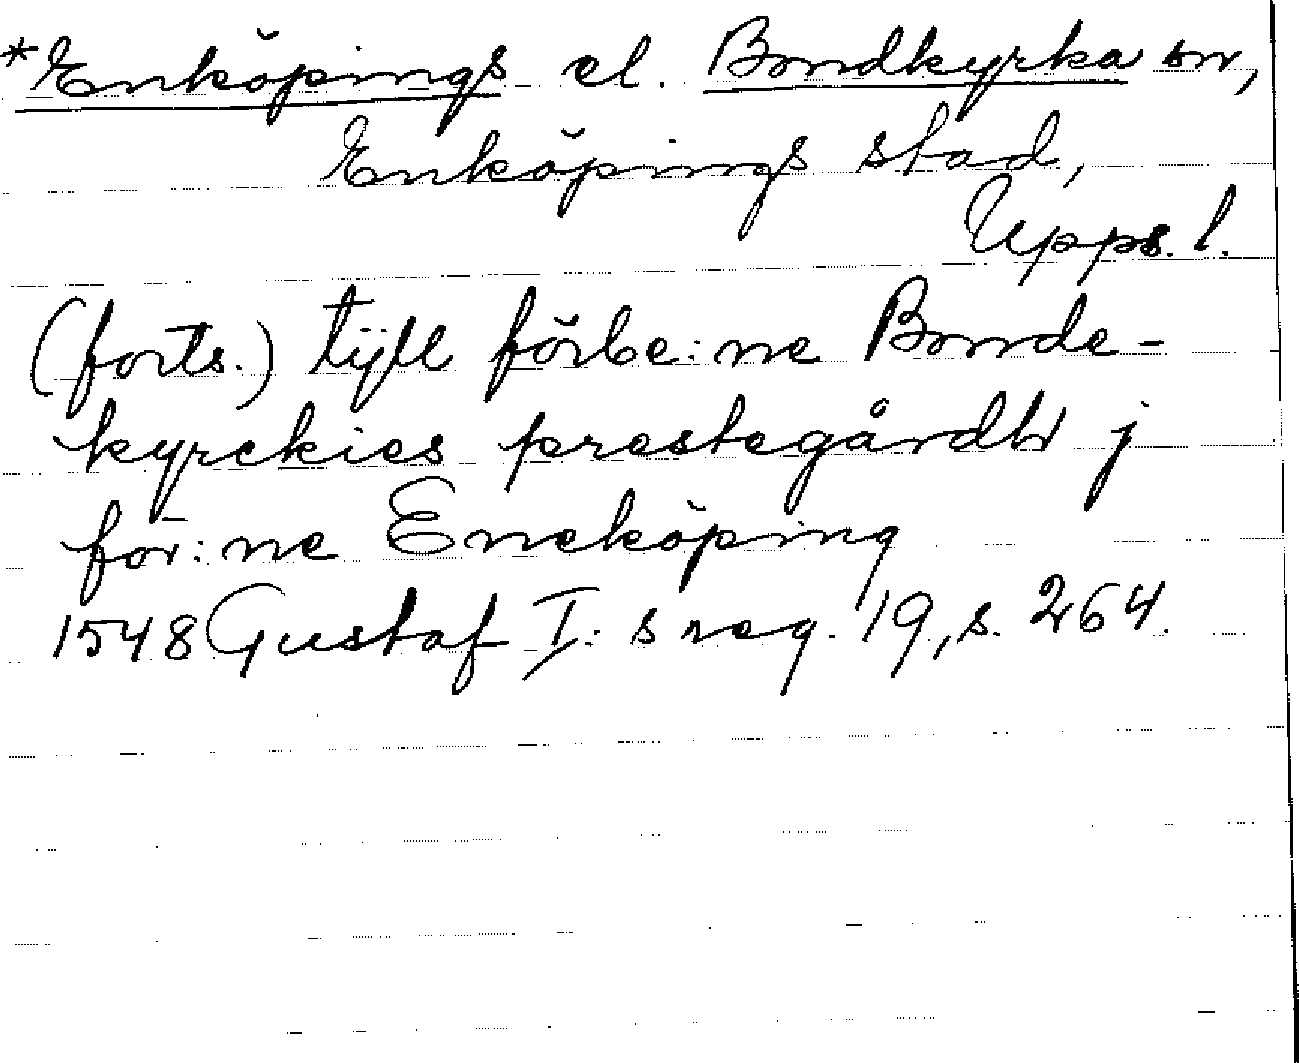 *Enköpings el. Bondkyrka sn,
Enköpings stad,
Upps. l.
(forts.) tijll förbe:ne Bonde-
kyrckies prestegårdh j
för:ne Eneköping
1548 Gustaf I:s reg. 19, s. 264.